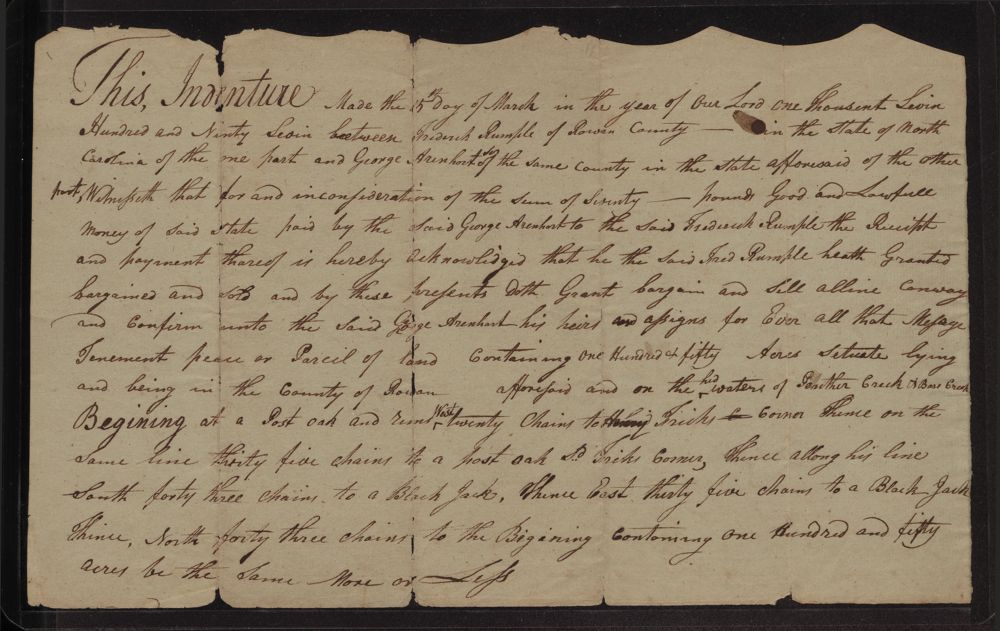 This, Indenture Made the 15th day of March in the year of Our Lord One Thousent Sevin
Hundred and Ninty Sevin between Frederick Rumple of Rowan County — in the State of North
Carolina of the one part and George Arenhort of the same County in the State afforesaid of the other
part, Witnesseth that for and inconsideration of the Sum of Seventy — pounds Good and Lawfull
money of Said State paid by the Said George Arenhort to the Said Frederick Rumple the Receipt
and payment thareof is hereby acknowledged that he the Said Fred Rumple heath Granted
bargained and Sold and by these presents doth Grant bargain and Sell alline Convay
and Confirm unto the Said George Arenhart his heirs and assigns for Ever all that Mesage
Tenement peace or Parcil of land Containing one Hundred & fifty Acres Setuate lying
and being in the County of Rowan afforesaid and on the hed waters of Panther Creek & Bare Creek
Begining at a Post oak and runs West twenty Chains to Fricks Cornor Thence on the
Same line thirty five chains to a post oak Sd Fricks Corner, Thence allong his line
South forty three chains to a Black Jack, Thence East thirty five chains to a Black Jack
Thince, North forty three chains to the Begining Containing one Hundred and fifty
acres be the Same More or Less